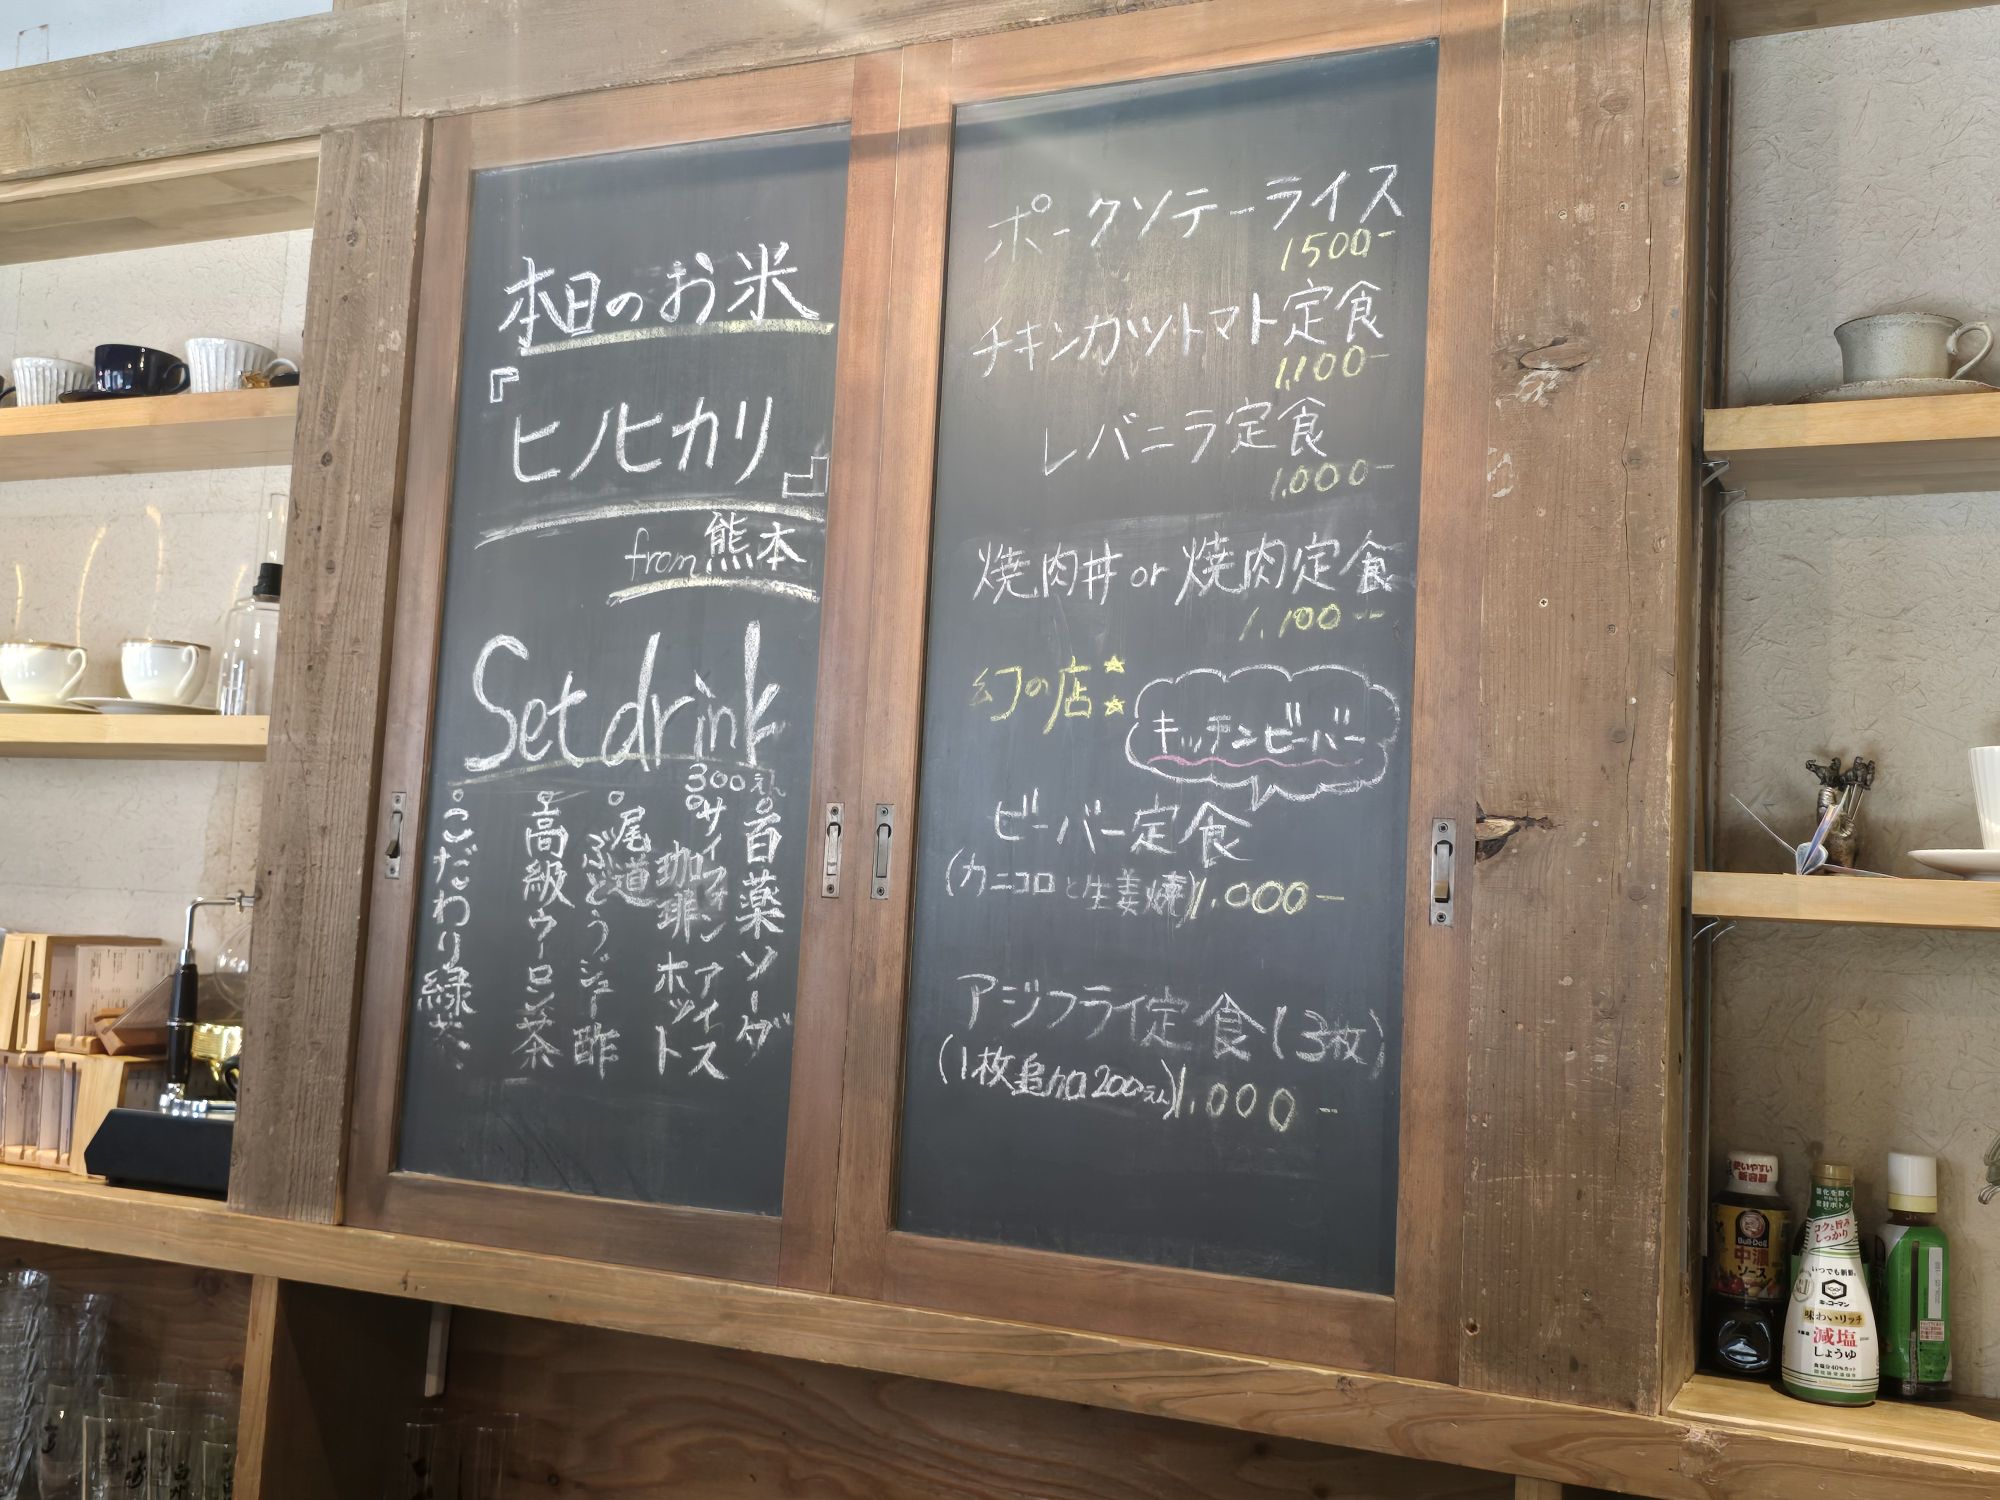 本日のお米
『ヒノヒカリ』
from熊本
Set drink
300えん
百薬ソーダ
サイフォン珈琲
アイス
ホット
尾道
ぶどうジュー酢
高級ウーロン茶
こだわり緑茶
ポークソテーライス
1500-
チキンカツトマト定食
1,100-
レバニラ定食
1,000-
焼肉丼or焼肉定食
1,100-
幻の店
キッチンビーバー
ビーバー定食
(カニコロと生姜焼)1,000-
アジフライ定食(3枚)
(1枚追加200えん)1,000-
使いやすい
新容器
Bull-Dog
中濃
ソース
鮮度ボトル
コクと旨み
しっかり
いつでも新鮮
キッコーマン
味わいリッチ
減塩
しょうゆ
食塩分40%カット